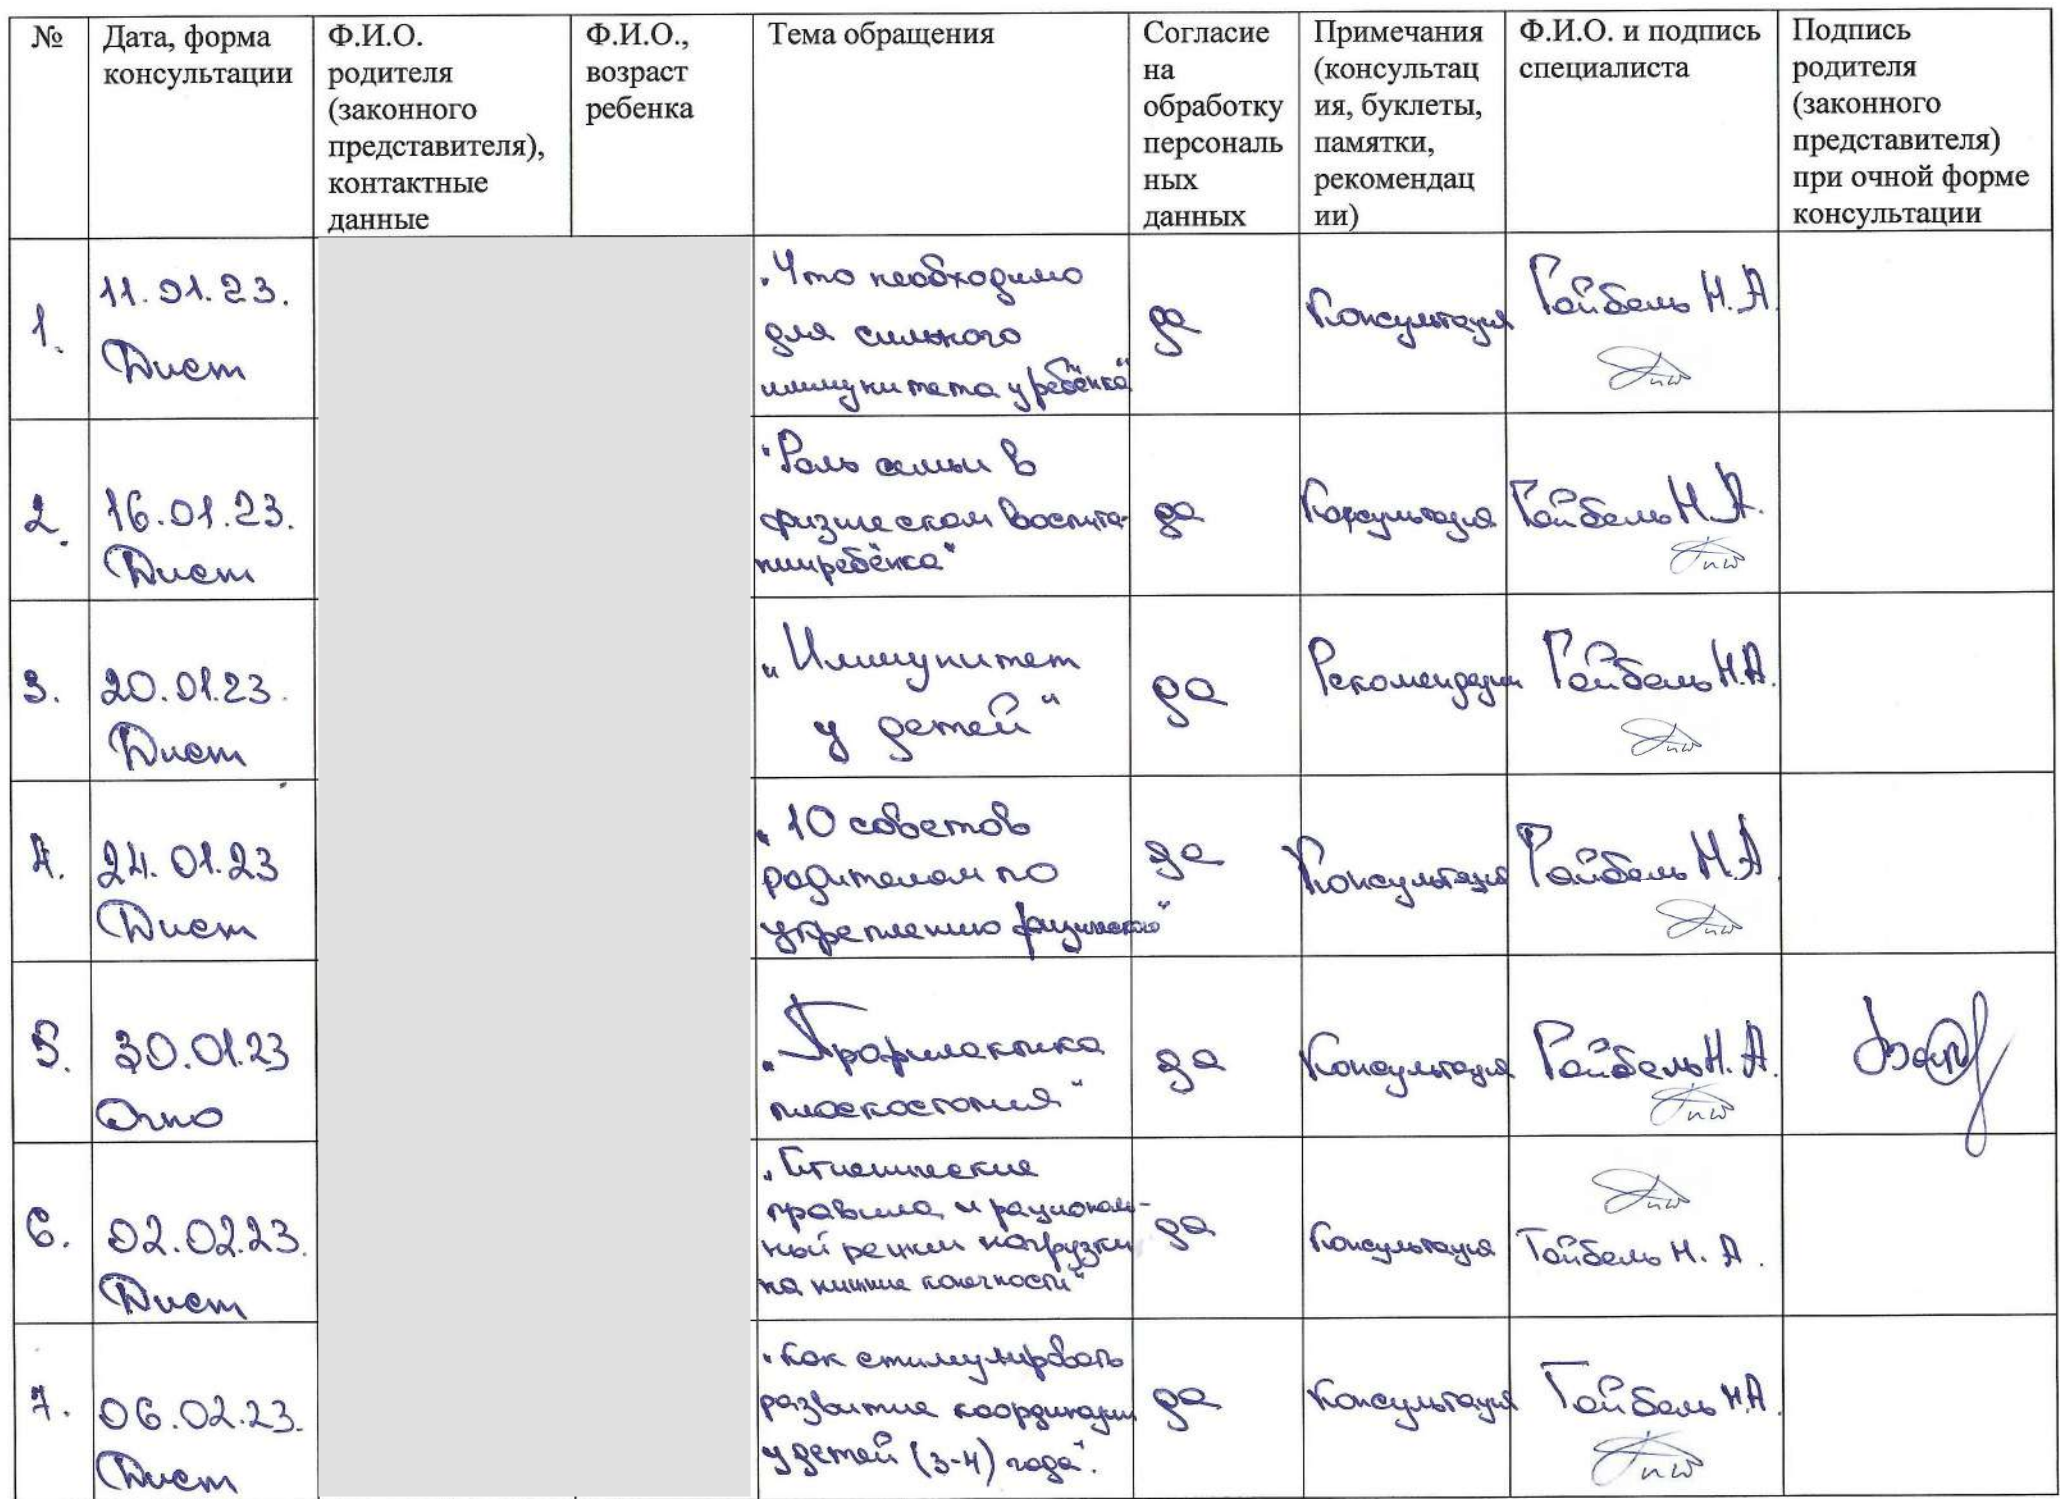 №
Дата, форма
консультации
Ф.И.О.
родителя
(законного
представителя),
контактные
данные
Ф.И.О.,
возраст
ребенка
Тема обращения
Согласие
на
обработку
персональ
ных
данных
Примечания
(консультац
ия, буклеты,
памятки,
рекомендац
ии)
Ф.И.О. и подпись
специалиста
Подпись
родителя
(законного
представителя)
при очной форме
консультации
1.
11.01.23.
Дист
„Что необходимо
для сильного
иммунитета у ребёнка"
да
Консультация
Гайбель Н.А.
2.
16.01.23.
Дист
"Роль семьи в
физическом воспита-
нии ребёнка"
да
Консультация
Гайбель Н.А.
3.
20.01.23.
Дист
„Иммунитет
у детей"
да
Рекомендации
Гайбель Н.А.
4.
24.01.23
Дист
„10 советов
родителям по
укреплению физическо"
да
Консультация
Гайбель Н.А
5.
30.01.23
Очно
„Профилактика
плоскостопия"
да
Консультация
Гайбель Н.А.
6.
02.02.23.
Дист
„Гигиенические
правила и рациональ-
ный режим нагрузки
на нижние конечности"
да
Консультация
Гайбель Н.А.
7.
06.02.23.
Дист
„Как стимулировать
развитие координации
у детей (3-4) года".
да
Консультация
Гайбель Н.А.